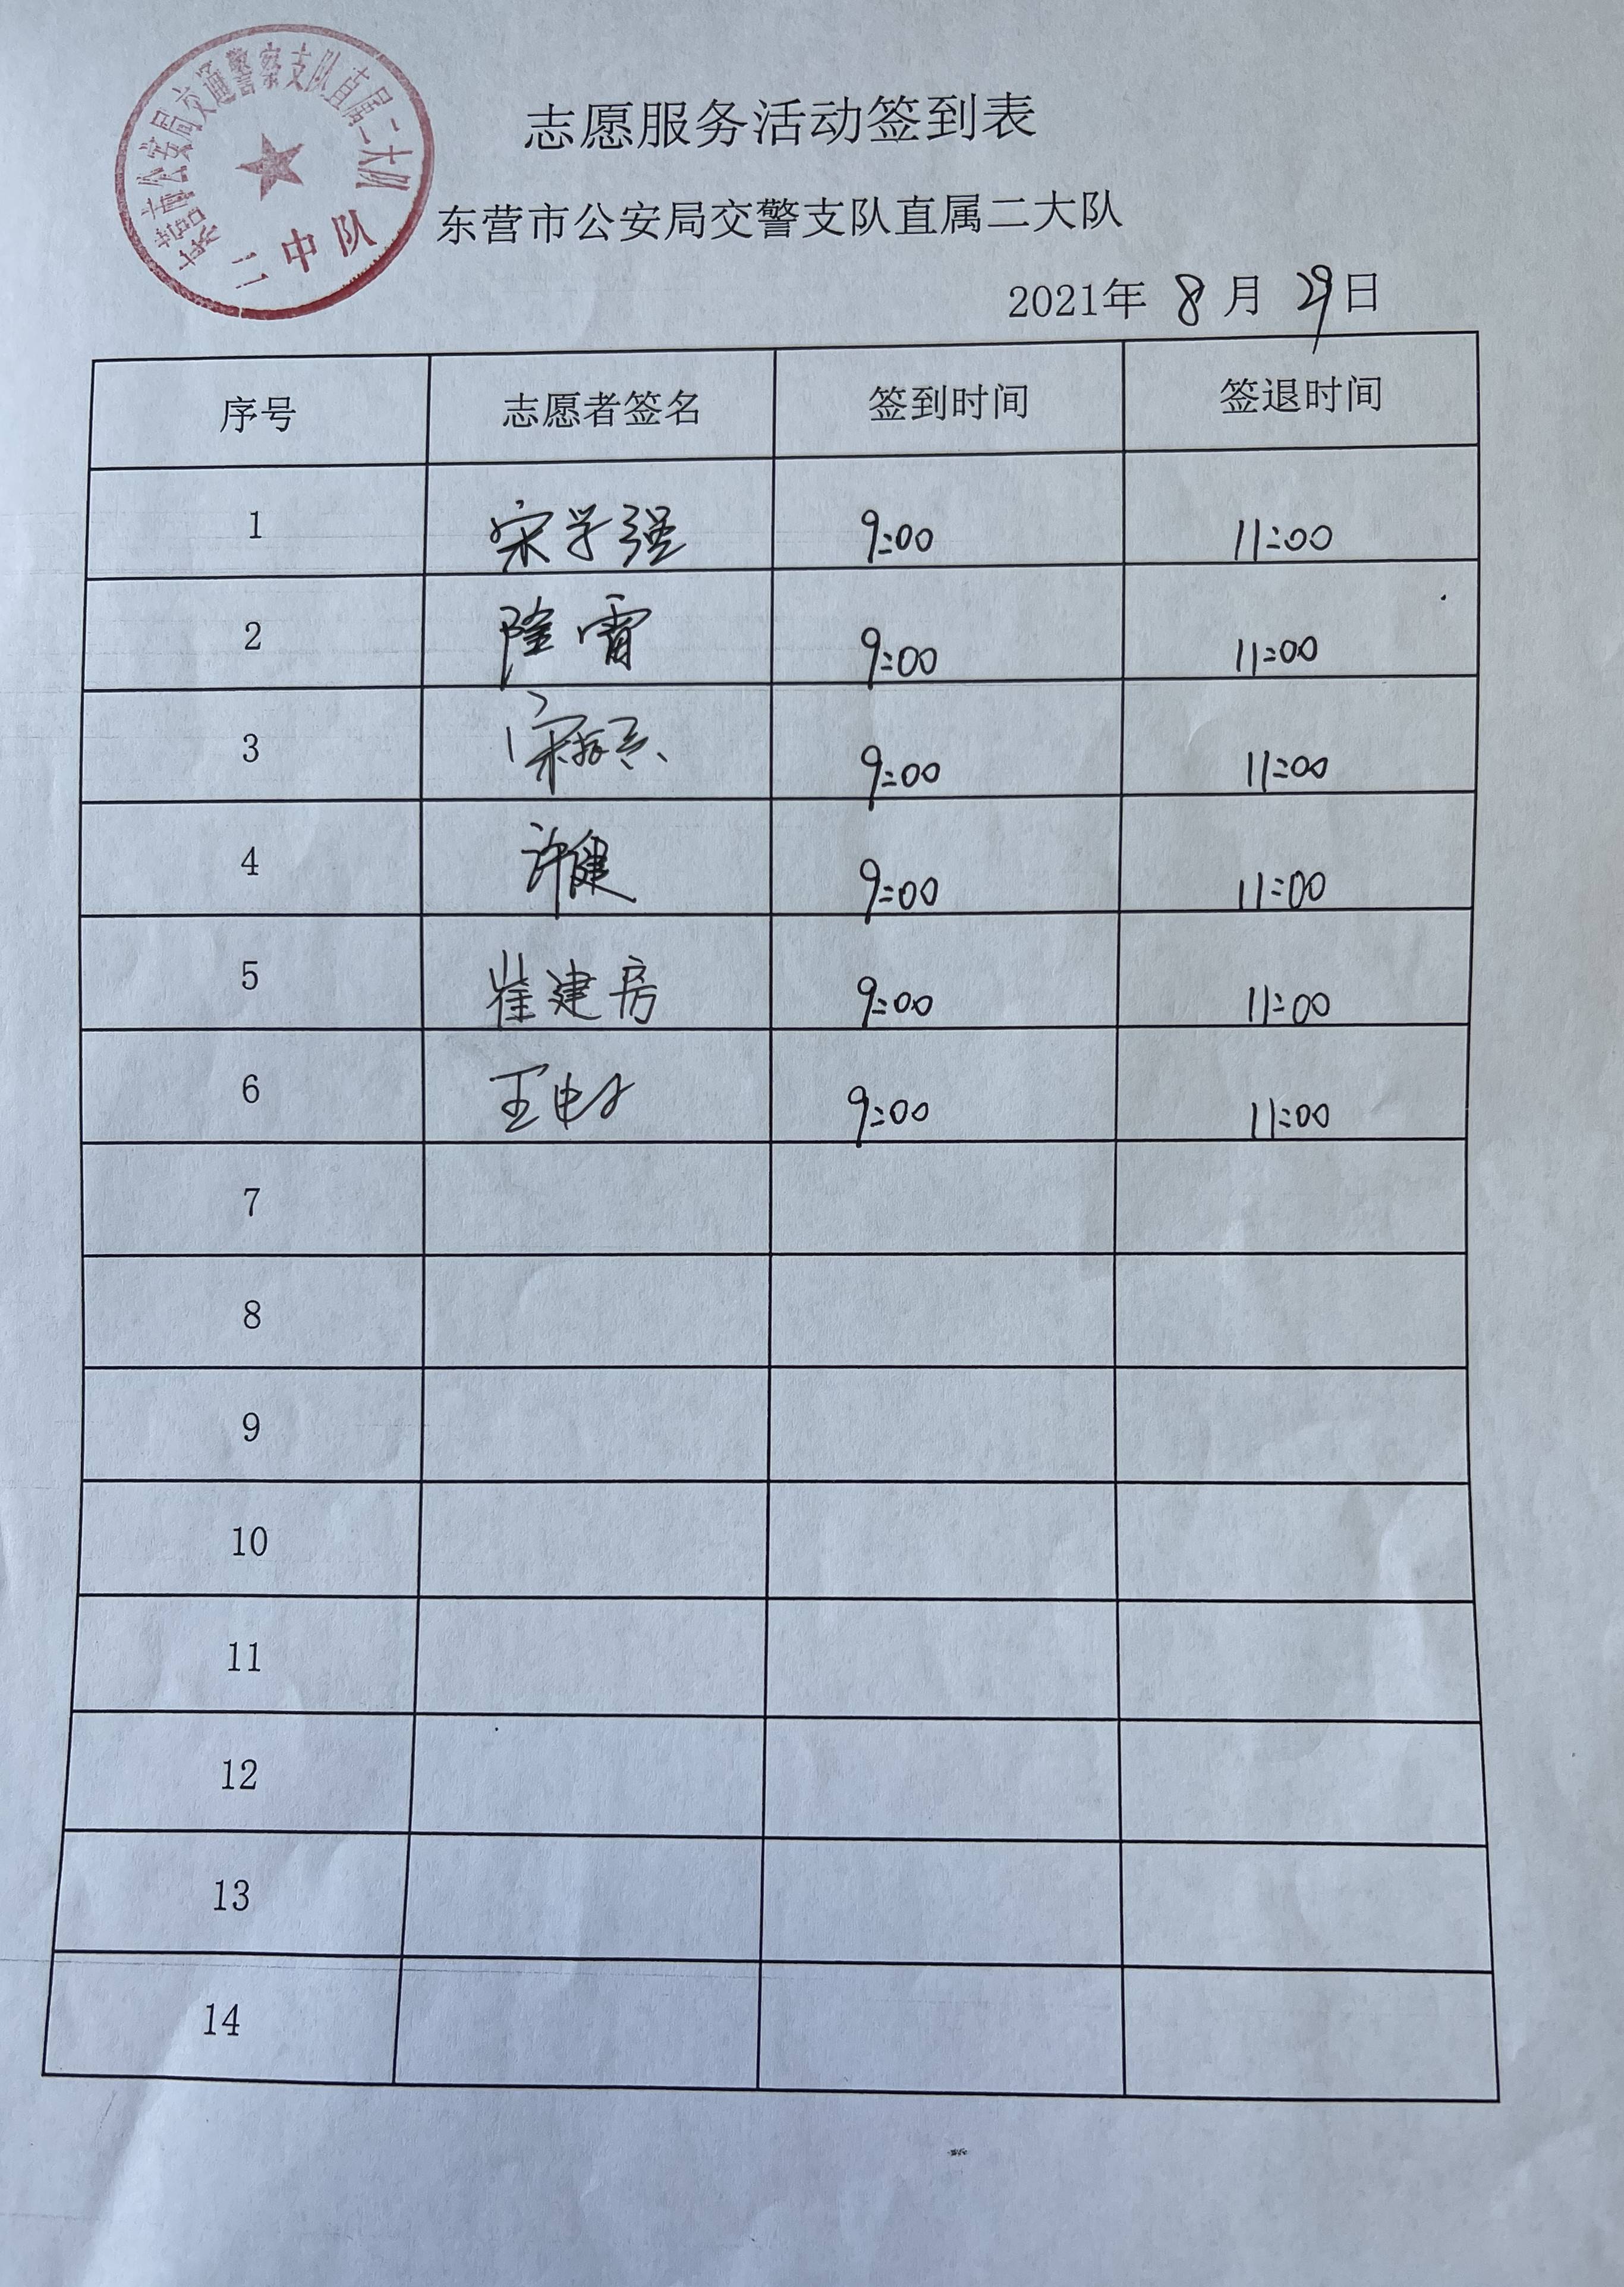 东营市公安局交通警察支队直属二大队
二中队
志愿服务活动签到表
东营市公安局交警支队直属二大队
2021年 8 月 29 日
序号 志愿者签名 签到时间 签退时间
1 宋学强 9:00 11:00
2 隆霄 9:00 11:00
3 宋振兴 9:00 11:00
4 许健 9:00 11:00
5 崔建房 9:00 11:00
6 王 9:00 11:00
7
8
9
10
11
12
13
14